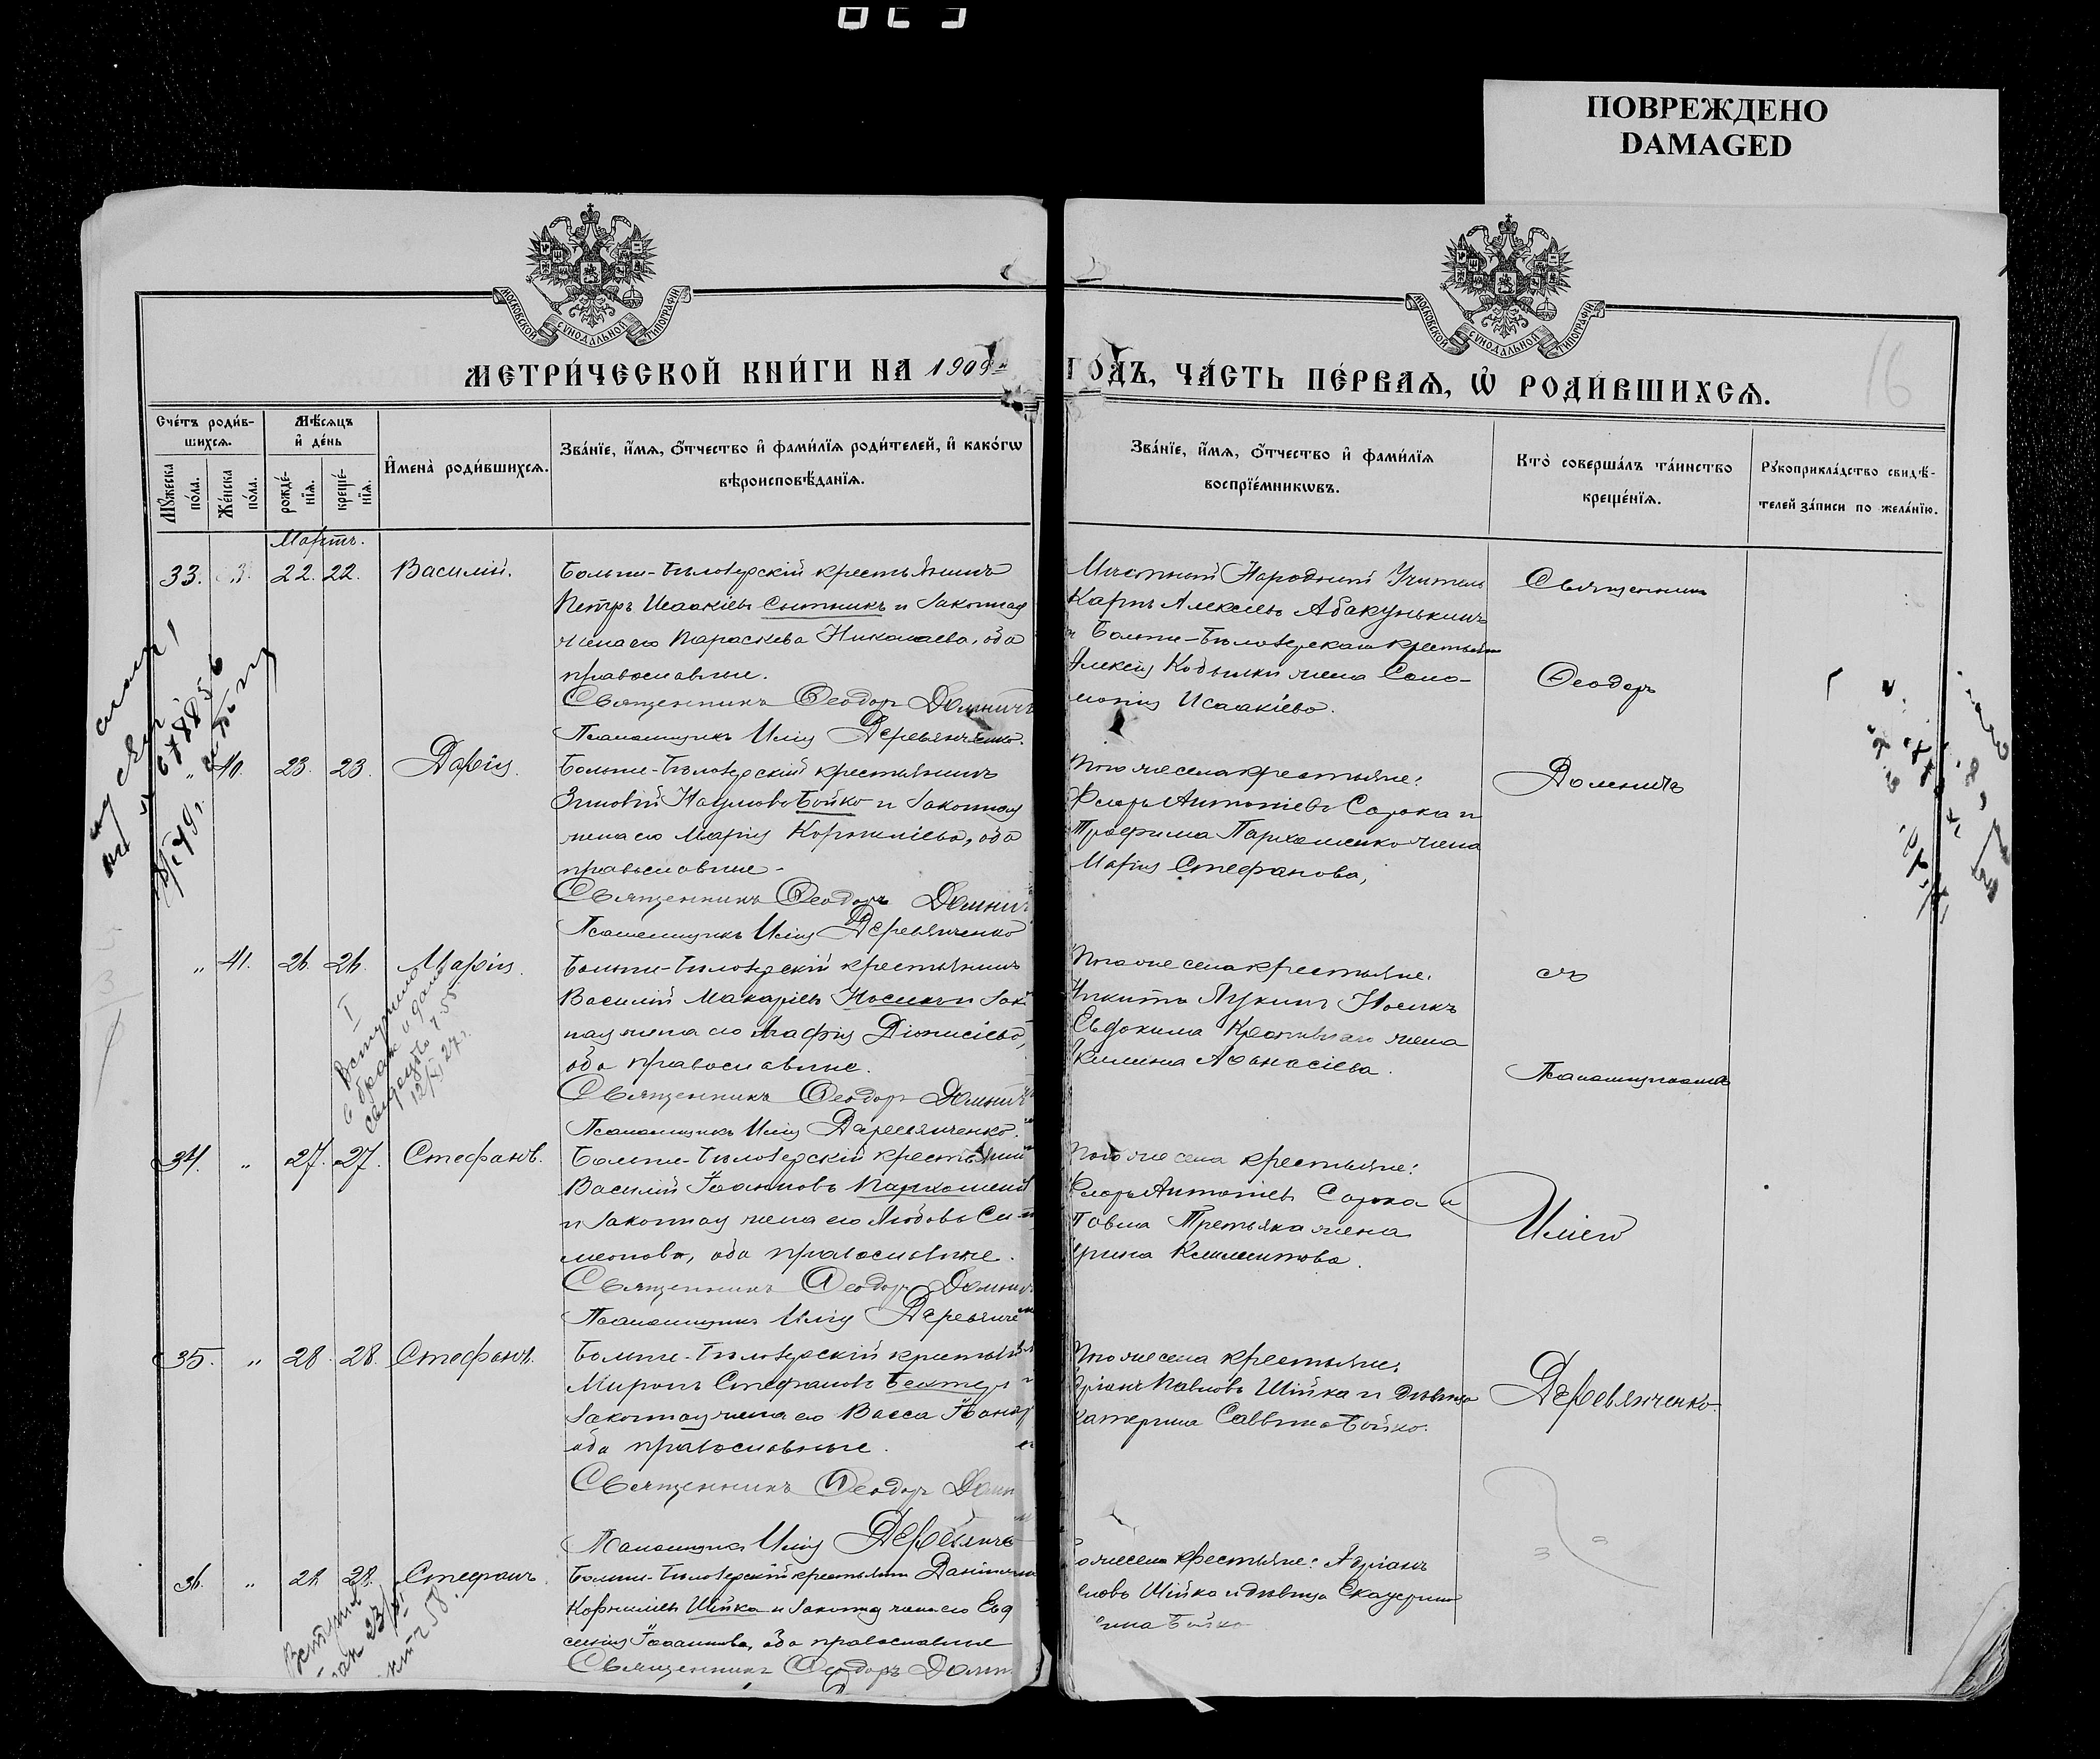 ПОВРЕЖДЕНО
DAMAGED
МОСКОВСКОЙ СѴНОДАЛЬНОЙ ТИПОГРАФІИ
МОСКОВСКОЙ СѴНОДАЛЬНОЙ ТИПОГРАФІИ
МЕТРИ́ЧЕСКОЙ КНИ́ГИ НА 1909
ГО́ДЪ, ЧА́СТЬ ПЕ́РВАѦ, Ѽ РОДИ́ВШИХСѦ.
16
Сче́тъ роди́в-
шихсѧ.
Мѣ́сѧцъ
и҆ де́нь
Мꙋ́жеска
по́ла.
Же́нска
по́ла.
рожде́-
нїѧ.
креще́-
нїѧ.
И҆мена̀ роди́вшихсѧ.
Зва́нїе, и҆́мѧ, ѻ҆́тчество и҆ фами́лїѧ роди́телей, и҆ како́гѡ
вѣроисповѣ́данїѧ.
Зва́нїе, и҆́мѧ, ѻ҆́тчество и҆ фами́лїѧ
воспрїе́мникѡвъ.
Кто̀ соверша́лъ та́инство
креще́нїѧ.
Рꙋкоприкла́дство свидѣ́-
телей за́писи по жела́нїю.
Мартъ.
33. 22. 22. Василій.
Больше-Бѣлозерскій крестьянинъ
Петръ Исаакіевъ Сытникъ и законная
жена его Параскева Николаева, оба
православные.
Священникъ Ѳеодоръ Домничъ
Псаломщикъ Илія Деревянченко.
Мѣстный Народный Учитель
Карпъ Алексѣевъ Абакунькинъ
и Больше-Бѣлозерская крестьян
Алексѣя Кобылки жена Соло-
монія Исаакіева.
Священникъ
Ѳеодоръ
„ 40. 23. 23. Дарія.
Больше-Бѣлозерскій крестьянинъ
Зиновій Наумовъ Бойко и законная
жена его Марія Корниліева, оба
православные.
Священникъ Ѳеодоръ Домничъ
Псаломщикъ Илія Деревянченко
Того же села крестьяне:
Флоръ Антоніевъ Сорока и
Трофима Пархоменко жена
Марія Стефанова,
Домничъ
„ 41. 26. 26. Марія.
Больше-Бѣлозерскій крестьянинъ
Василій Макаріевъ Носикъ и зак
ная жена его Агафія Діонисіева,
оба православные.
Священникъ Ѳеодоръ Домничъ
Псаломщикъ Илія Деревянченко.
Того же села крестьяне:
Никита Лукинъ Носикъ
Евдокима жена
Акилина Аѳанасіева.
съ
Псаломщикомъ
I
Вступила
в брак и дана
12/XI 27 г.
34. „ 27. 27. Стефанъ.
Больше-Бѣлозерскій крестьянин
Василій Іоанновъ Пархоменко
и законная жена его Любовь Си-
меонова, оба православные.
Священникъ Ѳеодоръ Домнич
Псаломщикъ Илія Деревянче
Того же села крестьяне:
Флоръ Антоніевъ Сорока и
Павла Третьяка жена
Ирина Климентова.
Иліею
35. „ 28. 28. Стефанъ.
Больше-Бѣлозерскій крестьян
Миронъ Стефановъ Бехтеръ и
законная жена его Васса Іоан
оба православные.
Священникъ Ѳеодоръ Домн
Псаломщикъ Илія Деревянче
Того же села крестьяне:
Адріанъ Павловъ Шійка и дѣвица
Екатерина Саввина Бойко.
Деревянченко.
36. „ 28. 28. Стефанъ.
Больше-Бѣлозерскій крестьянин Даніилъ
Корниліевъ Шійка и законная жена его Евд
Іоаннова, оба православные
Священникъ Ѳеодоръ Домн
го же села крестьяне: Адріанъ
вловъ Шійка и дѣвица Екатерин
вина Бойко